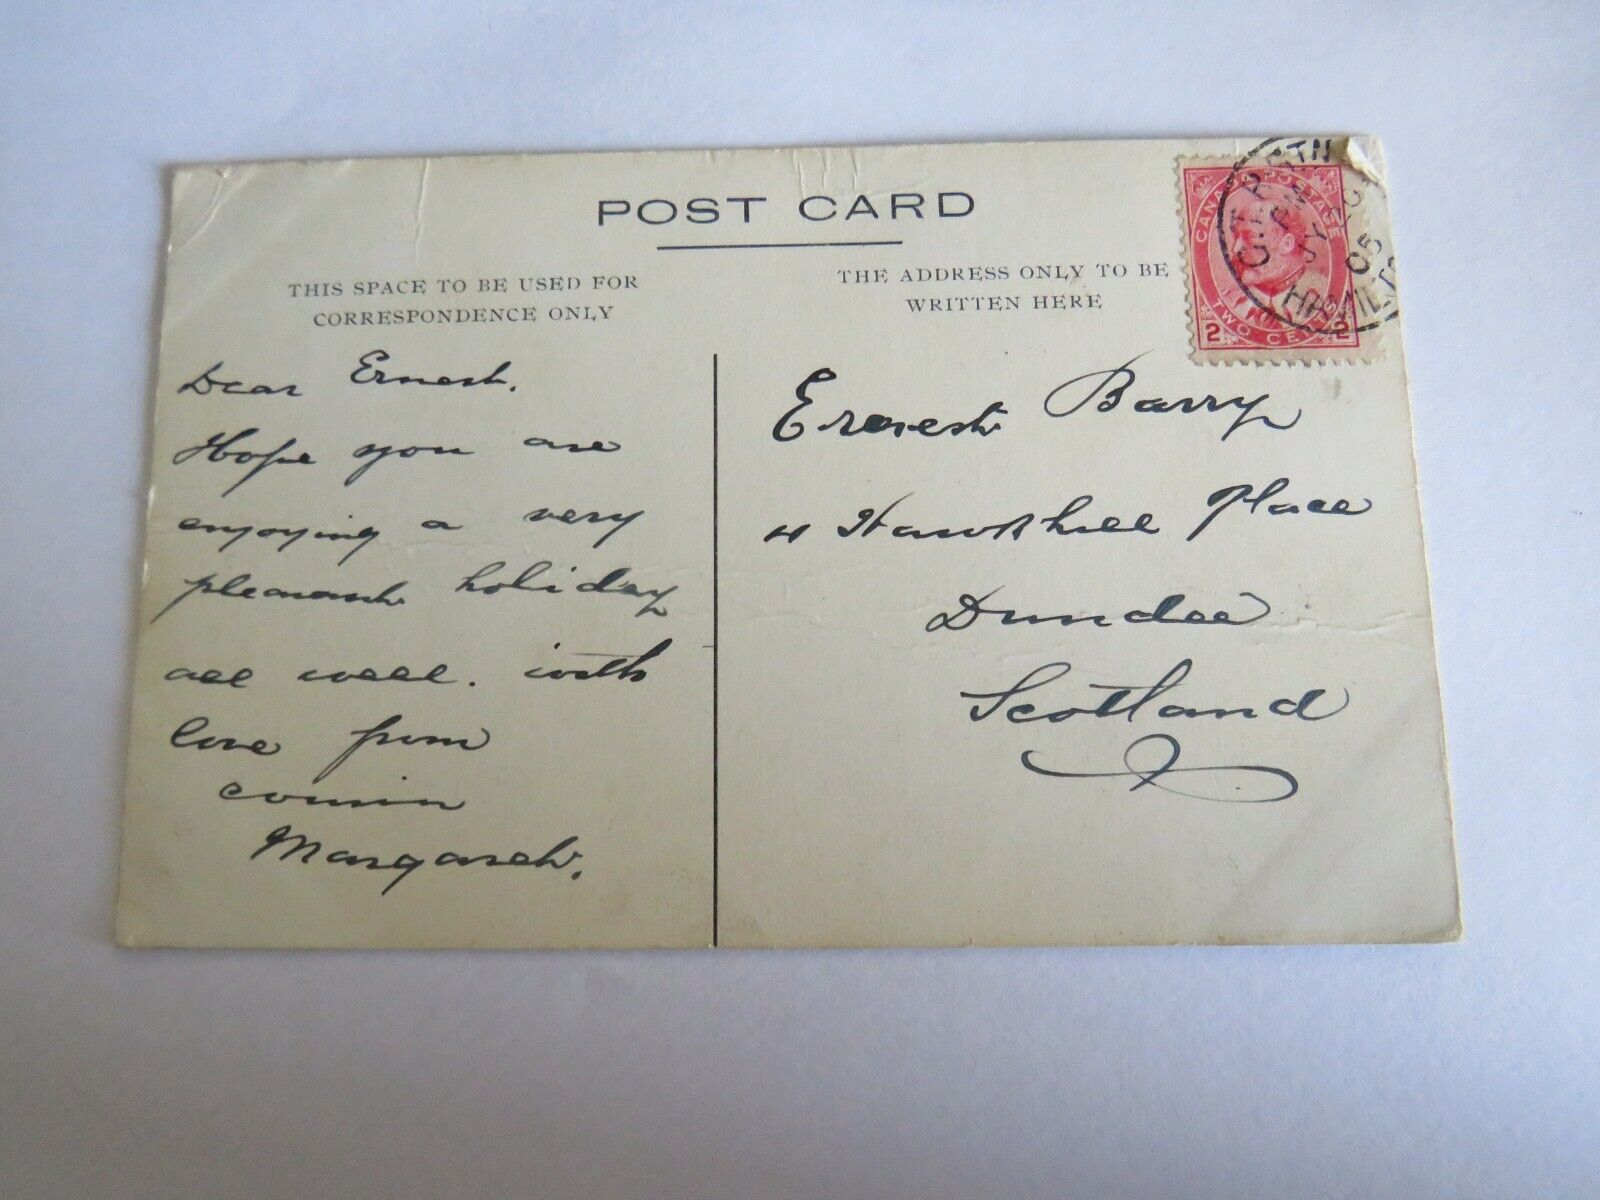 POST CARD
THIS SPACE TO BE USED FOR
CORRESPONDENCE ONLY
Dear Ernest.
Hope you are
enjoying a very
pleasant holiday
all well. with
love from
cousin
Margaret.
THE ADDRESS ONLY TO BE
WRITTEN HERE
Ernest Barry
4 Hawkhill Place
Dundee
Scotland
CANADA POSTAGE
2 TWO CENTS 2
PM
JY
05